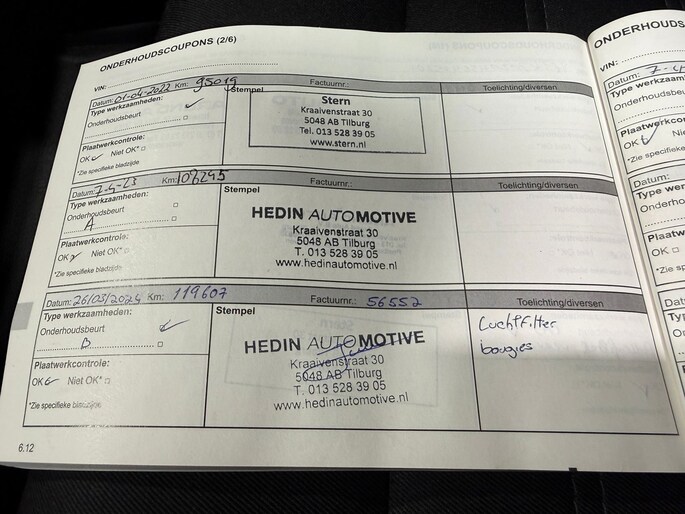 ONDERHOUDSCOUPONS (2/6)
VIN:
Datum: 01-04-2022 Km: 95019 Factuurnr.: Toelichting/diversen
Type werkzaamheden:
Onderhoudsbeurt
Plaatwerkcontrole:
OK Niet OK*
*Zie specifieke bladzijde
Stempel
Stern
Kraaivenstraat 30
5048 AB Tilburg
Tel. 013 528 39 05
www.stern.nl
Datum: 7-4-23 Km: 108245 Factuurnr.: Toelichting/diversen
Type werkzaamheden:
Onderhoudsbeurt
A
Plaatwerkcontrole:
OK Niet OK*
*Zie specifieke bladzijde
Stempel
HEDIN AUTOMOTIVE
Kraaivenstraat 30
5048 AB Tilburg
T. 013 528 39 05
www.hedinautomotive.nl
Datum: 26/03/2024 Km: 119607 Factuurnr.: 56552 Toelichting/diversen
Type werkzaamheden:
Onderhoudsbeurt
B
Plaatwerkcontrole:
OK Niet OK*
*Zie specifieke bladzijde
Stempel
HEDIN AUTOMOTIVE
Kraaivenstraat 30
5048 AB Tilburg
T. 013 528 39 05
www.hedinautomotive.nl
Luchtfilter
bougies
6.12
ONDERHOUDSC
VIN:
Datum: 7-4
Type werkzaam
Onderhoudsbe
Plaatwerkco
OK Nie
*Zie specifie
Datum:
Type wer
Onderho
Plaatw
OK
*Zie s
Dat